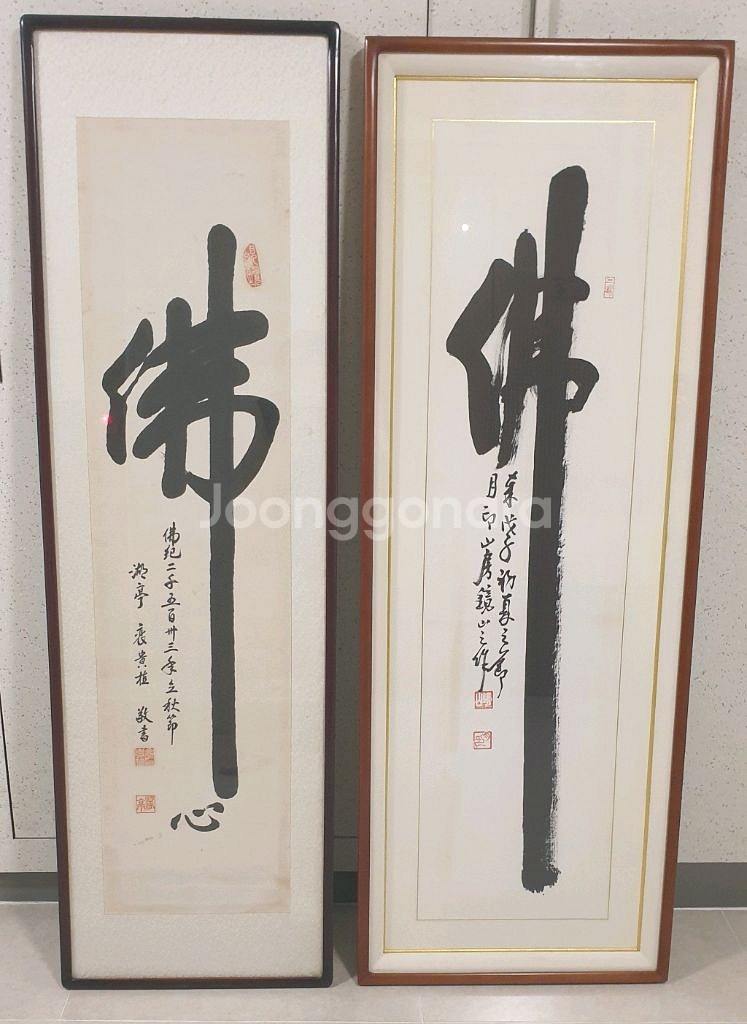 佛
佛紀二千五百卅三年立秋節
湖亭 裵貴植 敬書
心
佛
戊子初夏之節
月印山房鏡山之作
Joonggonara